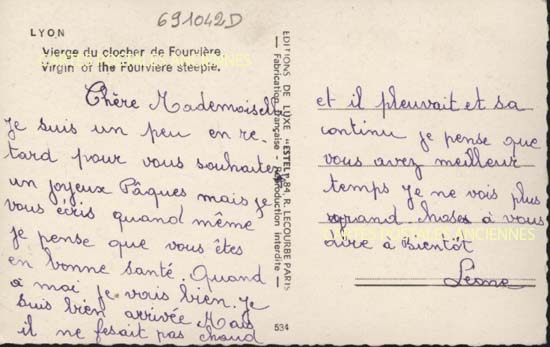 691042D
LYON
Vierge du clocher de Fourvière
Virgin of the Fourvière steeple.
Chère Mademoiselle
Je suis un peu en re-
tard pour vous souhaiter
un joyeux Pâques mais je
vous écris quand même
je pense que vous êtes
en bonne santé. Quand
a moi je vais bien. Je
suis bien arrivée Mais
il ne fesait pas chaud
EDITIONS DE LUXE "ESTEL" 84, R. LECOURBE PARIS
— Fabrication française - Reproduction interdite —
534
et il pleuvait et sa
continu je pense que
vous avez meilleur
temps je ne vois plus
grand choses à vous
dire à Bientôt
Léone
CARTES POSTALES ANCIENNES